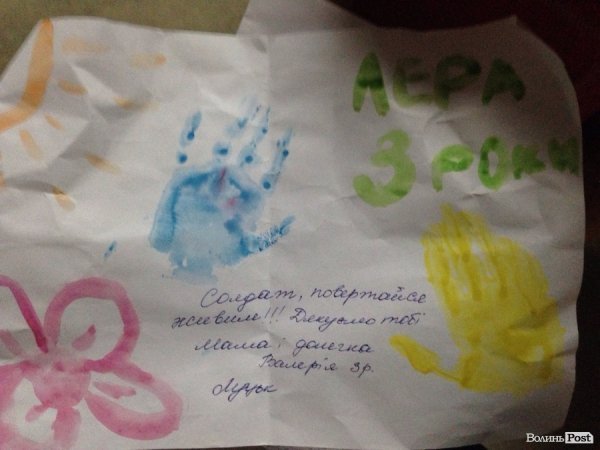 ЛЕРА
3 РОКИ
Солдат, повертайся
живим!!! Дякуємо тобі
Мама і донечка
Валерія 3р.
Луцьк
ВолиньPost